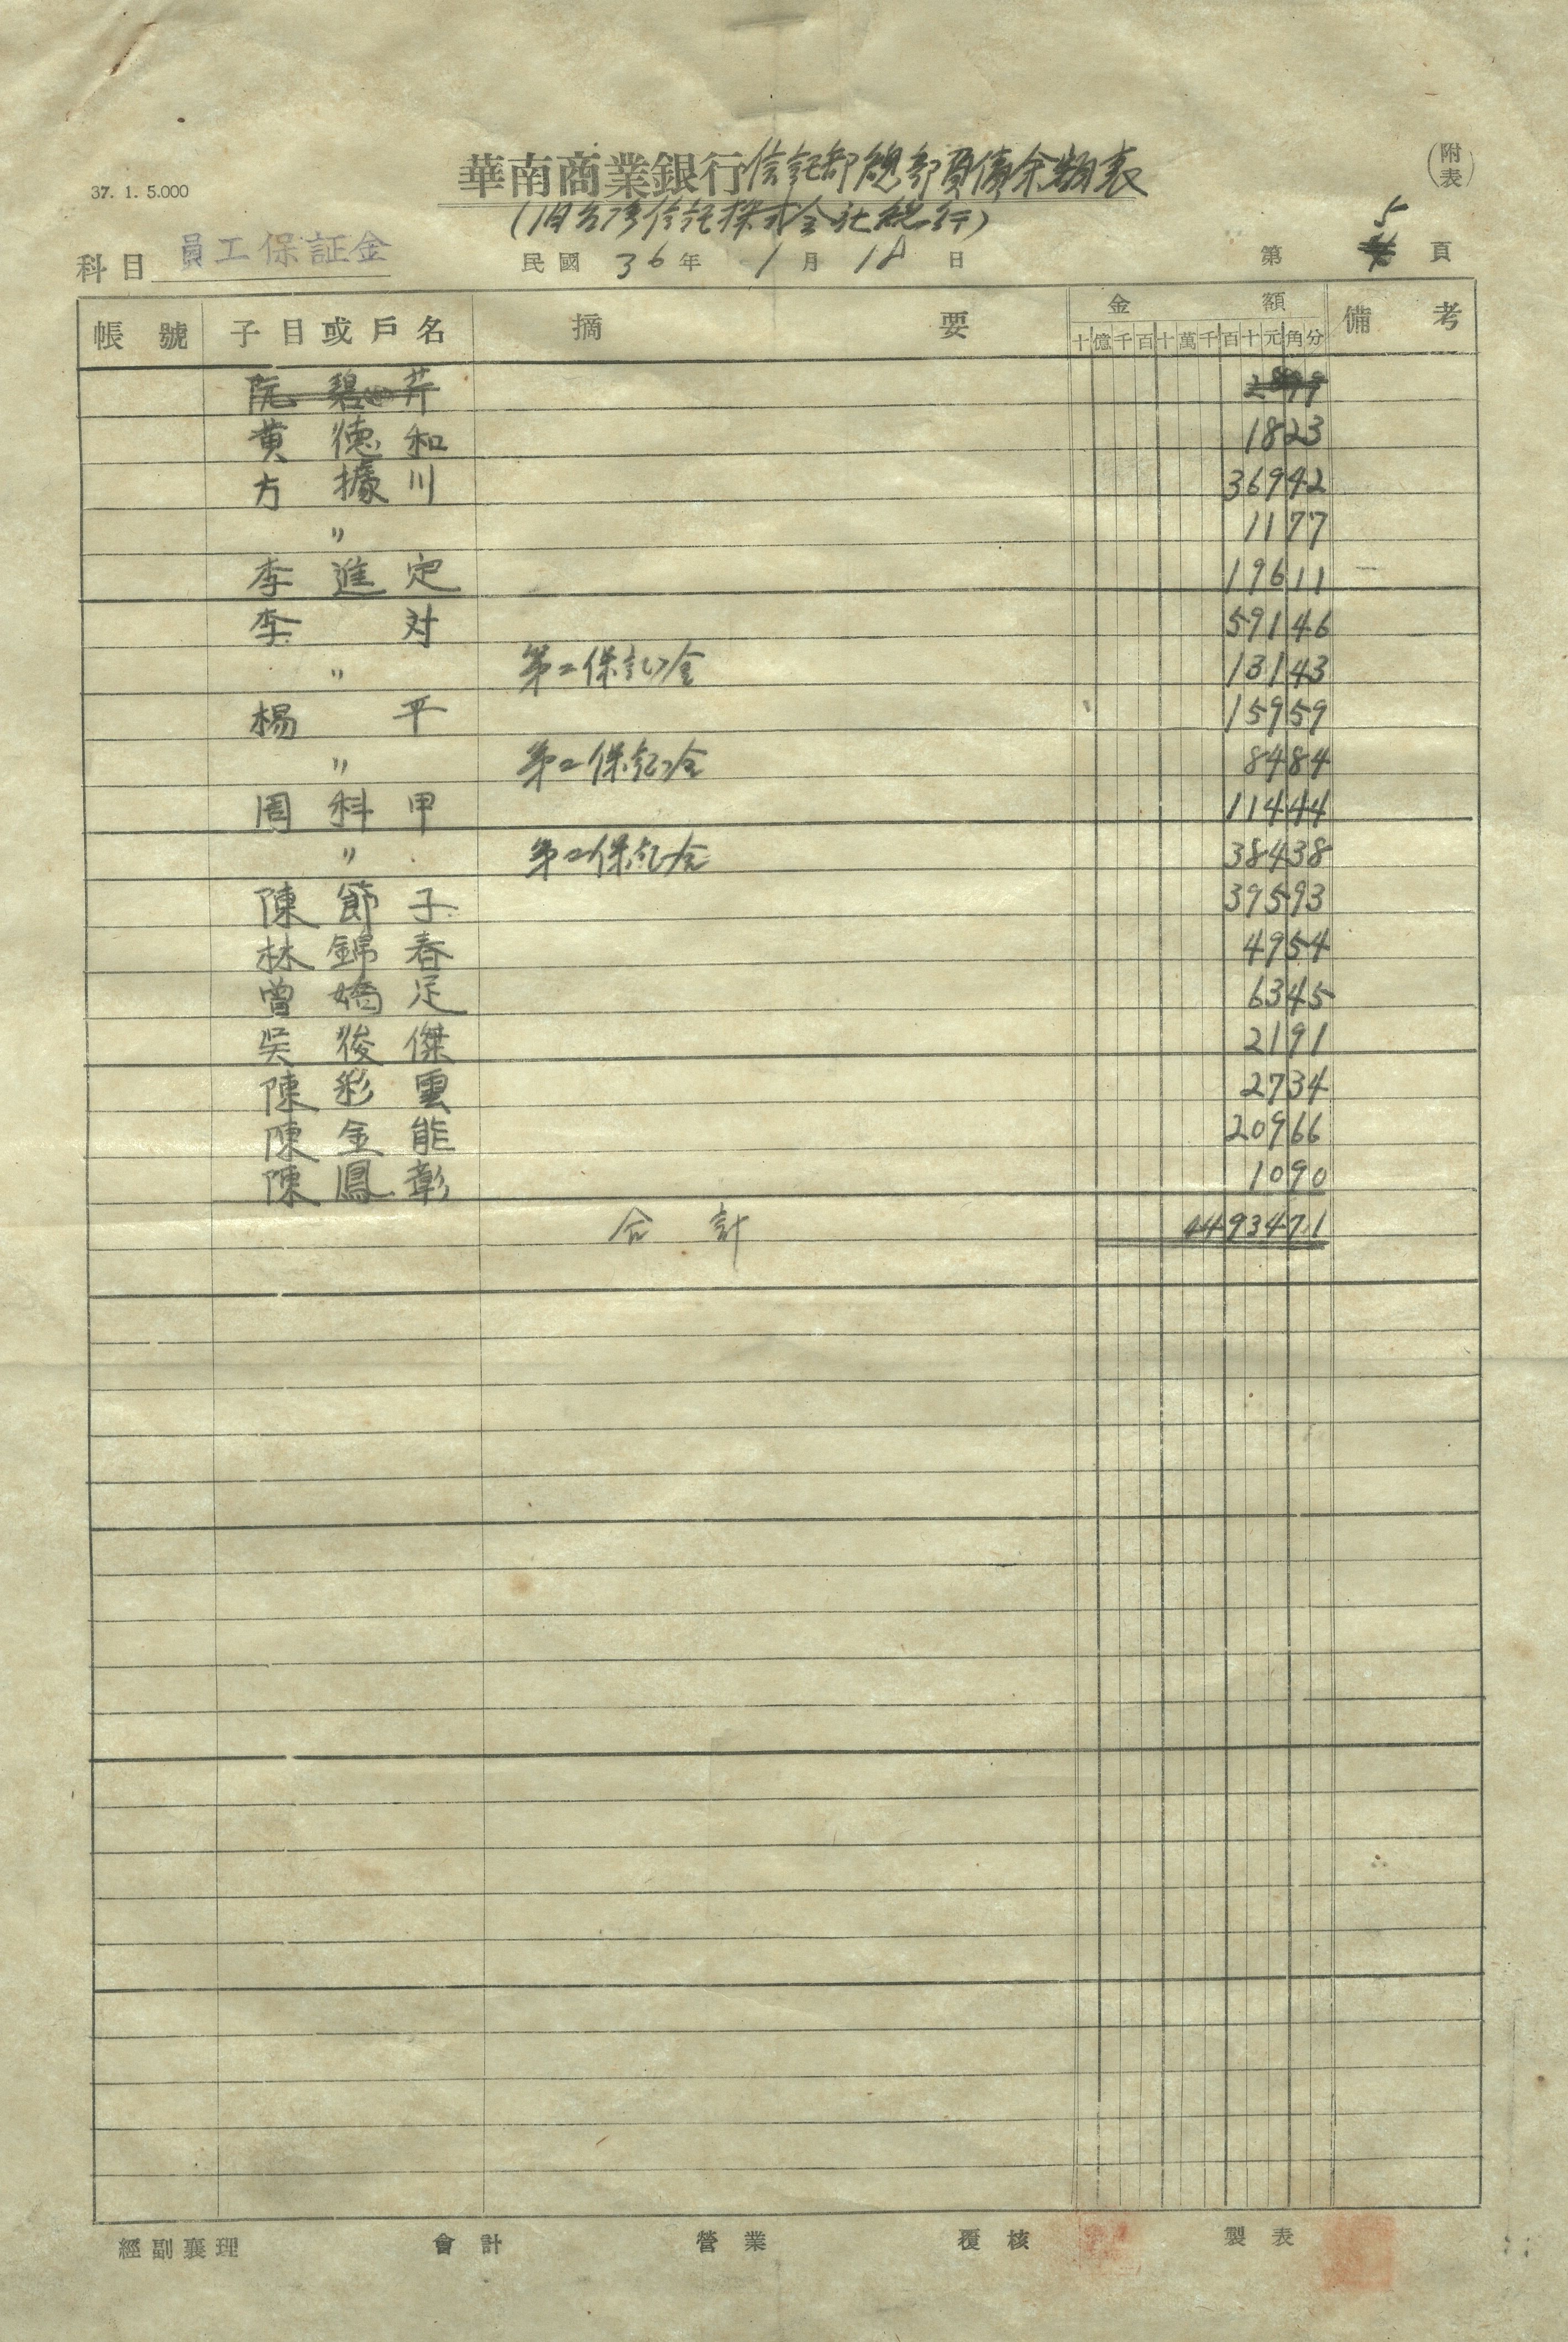 37. 1. 5.000
華南商業銀行信託部總部負債余額表
(附表)
(旧台湾信託株式会社総行)
科目 員工保証金 民國 36年 1月 18日 第 5 頁
帳號 子目或戶名 摘要 金額 備考
十億千百十萬千百十元角分
阮碧芹
黄德和 1823
方據川 36942
〃 1177
李進定 19611
李対 59146
〃 第二保証金 13143
楊平 15959
〃 第二保証金 8484
周科甲 11444
〃 第二保証金 38438
陳節子 39593
林錦春 4954
曾嬌足 6345
吳俊傑 2191
陳彩雲 2734
陳金能 20966
陳鳳彰 1090
合計 4493471
經副襄理 會計 營業 覆核 製表